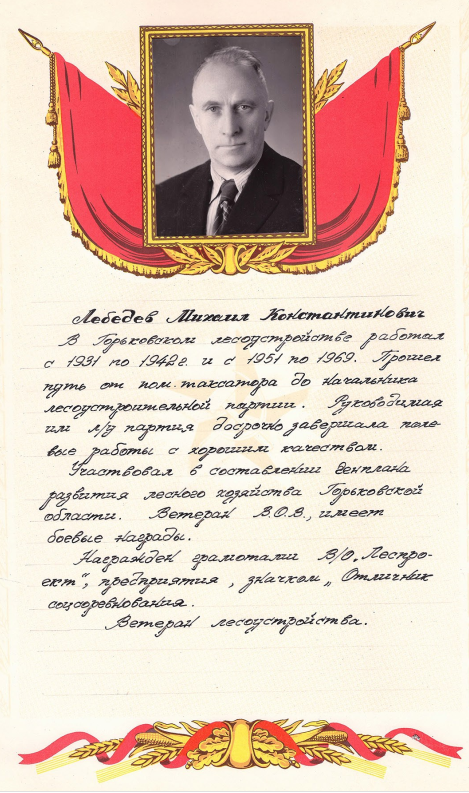 Лебедев Михаил Константинович
В Горьковском лесоустройстве работал
с 1931 по 1942 г. и с 1951 по 1969. Прошел
путь от пом. таксатора до начальника
лесоустроительной партии. Руководимая
им л/у партия досрочно завершала поле-
вые работы с хорошим качеством.
Участвовал в составлении генплана
развития лесного хозяйства Горьковской
области. Ветеран В.О.В., имеет
боевые награды.
Награжден грамотами В/О „Леспро-
ект“, предприятия, значком „Отличник
соцсоревнования.
Ветеран лесоустройства.